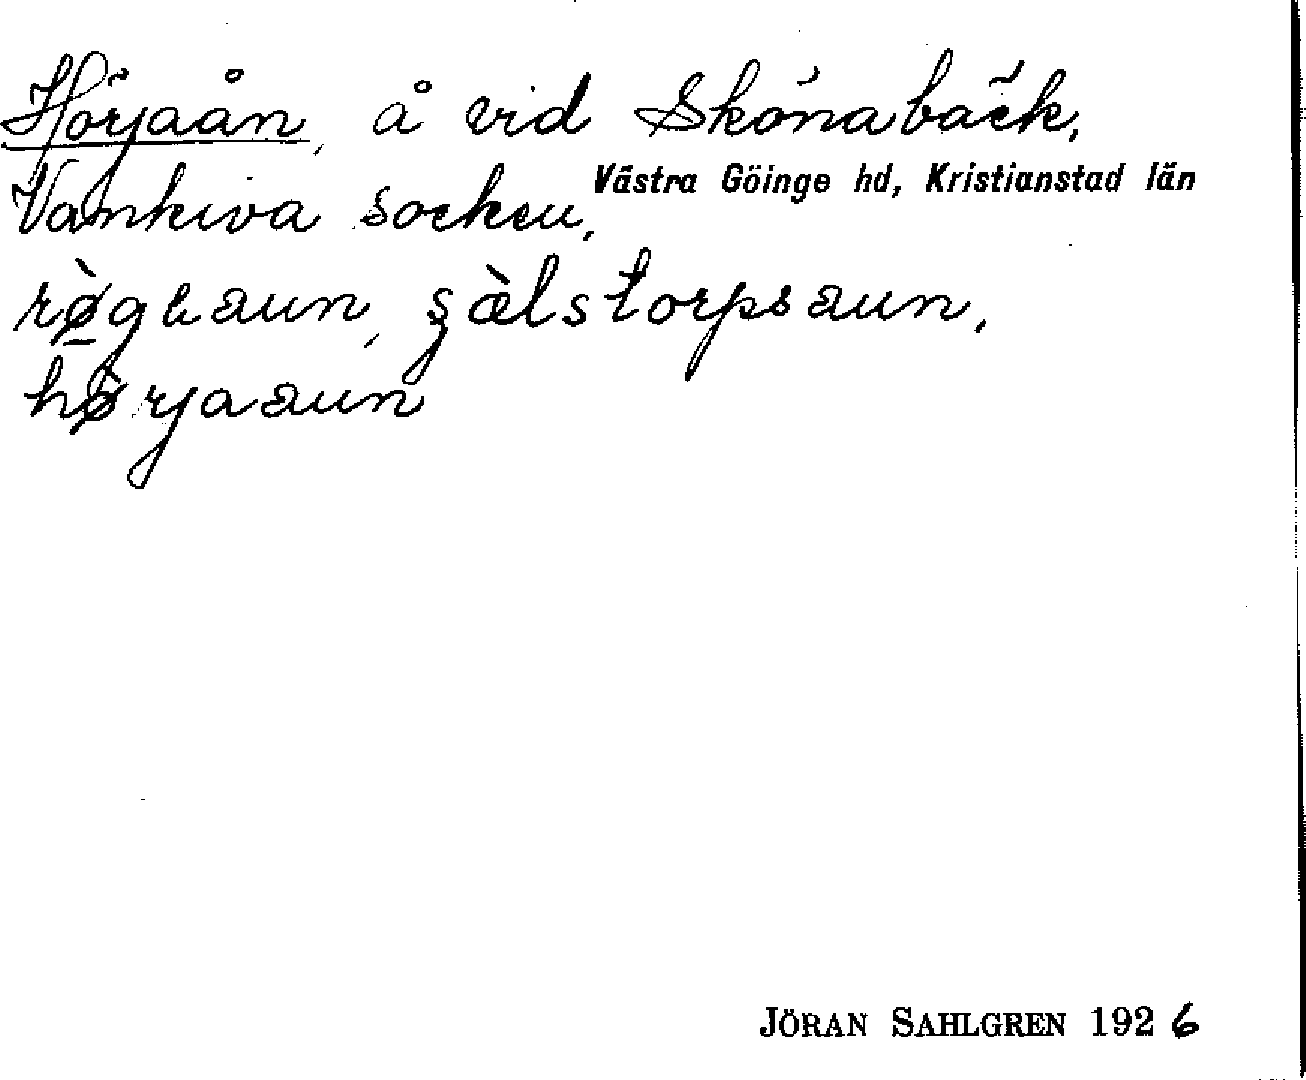 Hörjaån, å vid Skönabäck,
Vankiva socken, Västra Göinge hd, Kristianstad län
sælstorpsaun,
hø̀rjaaun
JÖRAN SAHLGREN 1926